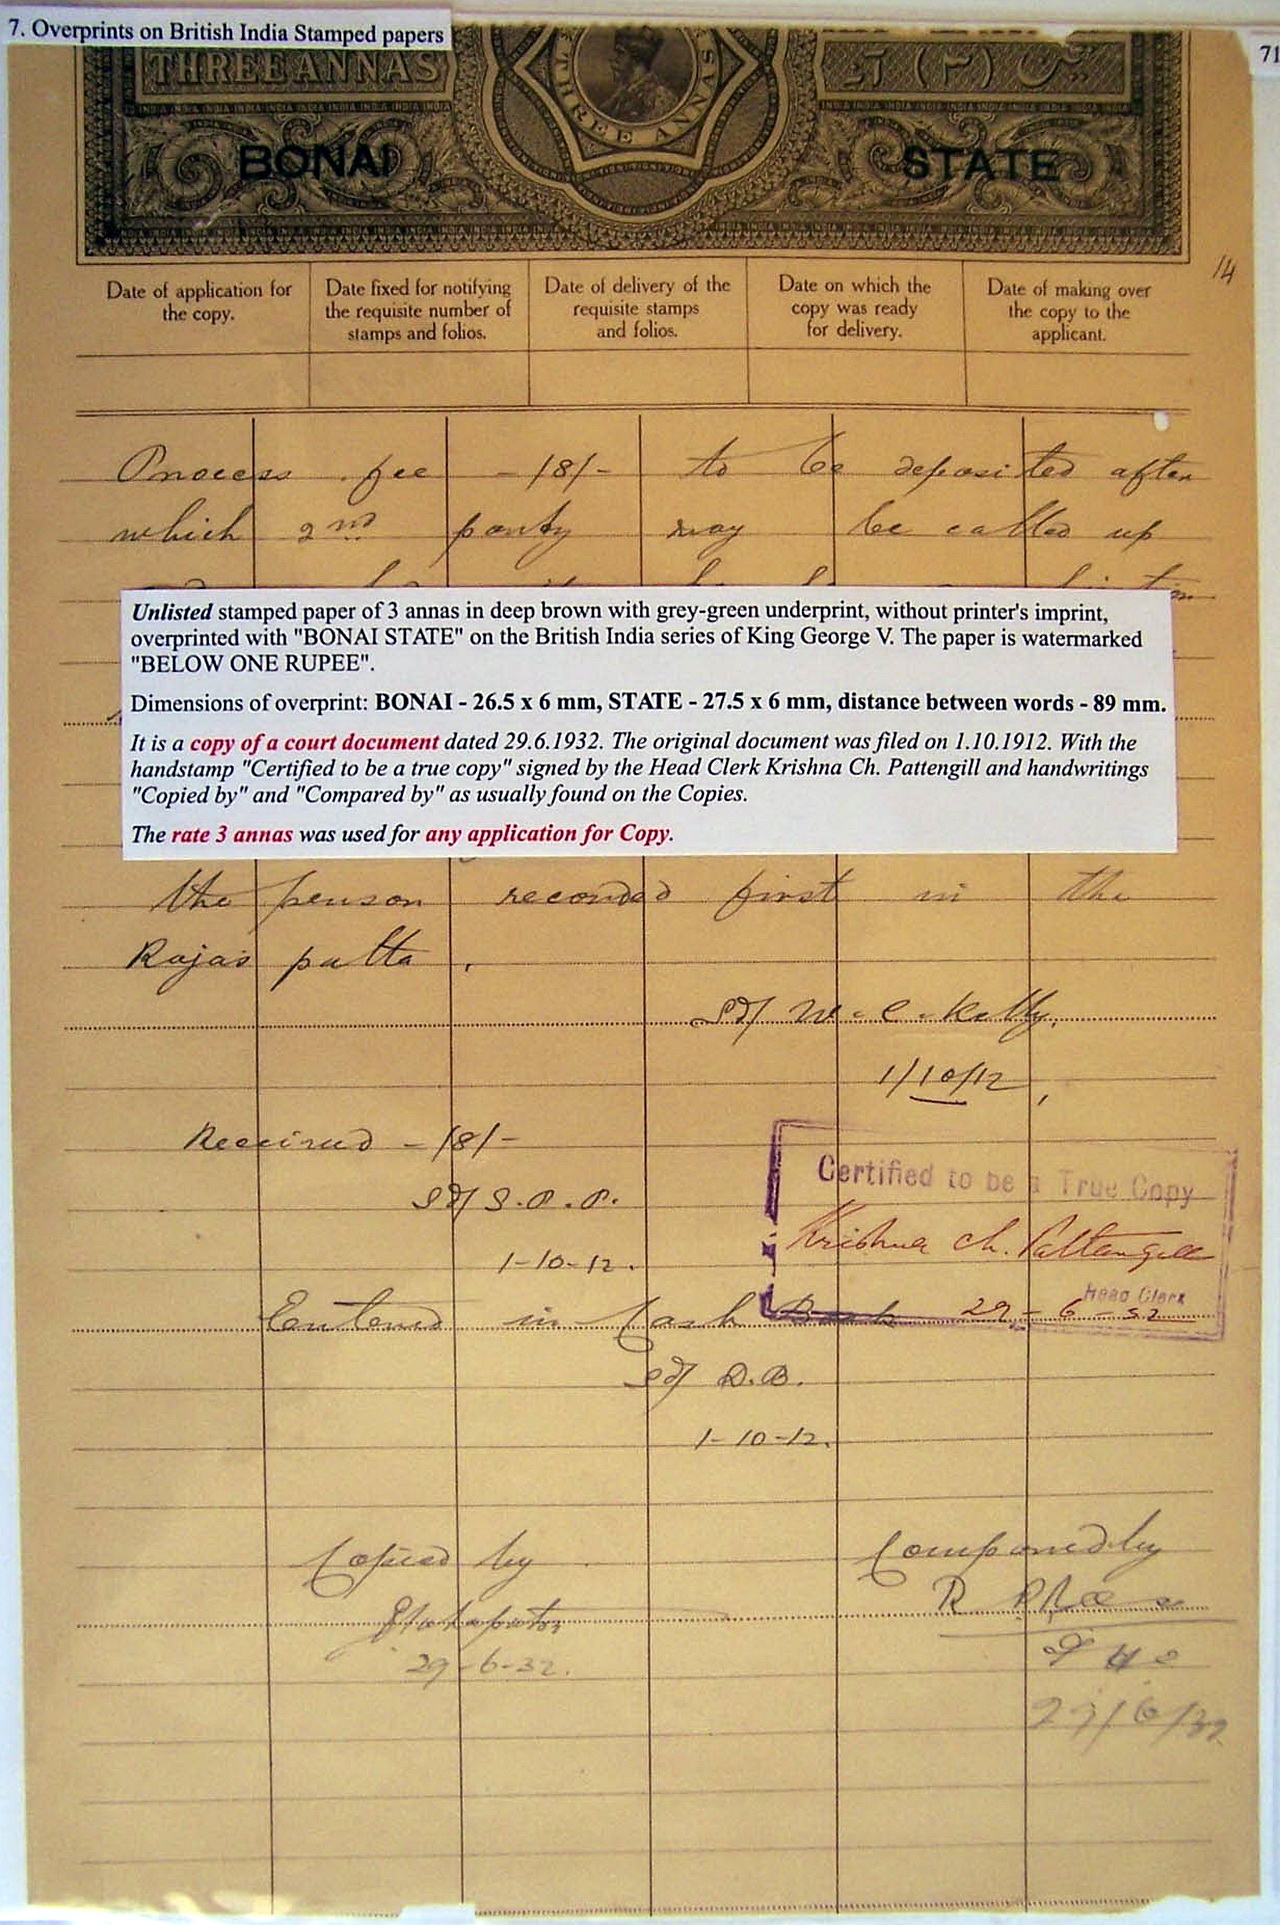 7. Overprints on British India Stamped papers
71
THREE ANNAS
THREE ANNAS
INDIA INDIA INDIA INDIA INDIA INDIA INDIA INDIA INDIA INDIA
BONAI STATE
14
Date of application for the copy.
Date fixed for notifying the requisite number of stamps and folios.
Date of delivery of the requisite stamps and folios.
Date on which the copy was ready for delivery.
Date of making over the copy to the applicant.
Process fee -/8/- to be deposited after
which 2nd party may be called up
Unlisted stamped paper of 3 annas in deep brown with grey-green underprint, without printer's imprint,
overprinted with "BONAI STATE" on the British India series of King George V. The paper is watermarked
"BELOW ONE RUPEE".
Dimensions of overprint: BONAI - 26.5 x 6 mm, STATE - 27.5 x 6 mm, distance between words - 89 mm.
It is a copy of a court document dated 29.6.1932. The original document was filed on 1.10.1912. With the
handstamp "Certified to be a true copy" signed by the Head Clerk Krishna Ch. Pattengill and handwritings
"Copied by" and "Compared by" as usually found on the Copies.
The rate 3 annas was used for any application for Copy.
the person recorded first in the
Raja's patta.
Sd/ W. C. Kelly.
1/10/12,
Received -/8/-
Sd/ S. P. P.
1-10-12.
Certified to be a True Copy
Krishna Ch. Pattengill
Head Clerk
29-6-32
Entered in Cash Book
Sd/ D.B.
1-10-12.
Copied by
29-6-32.
Compared by